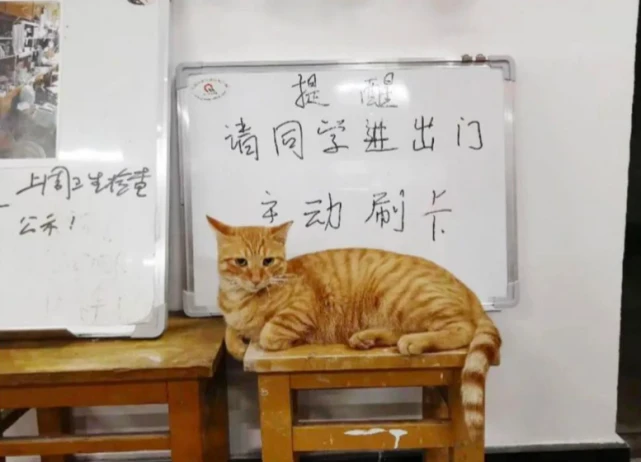 上周卫生检查
公示!
提醒
请同学进出门
主动刷卡